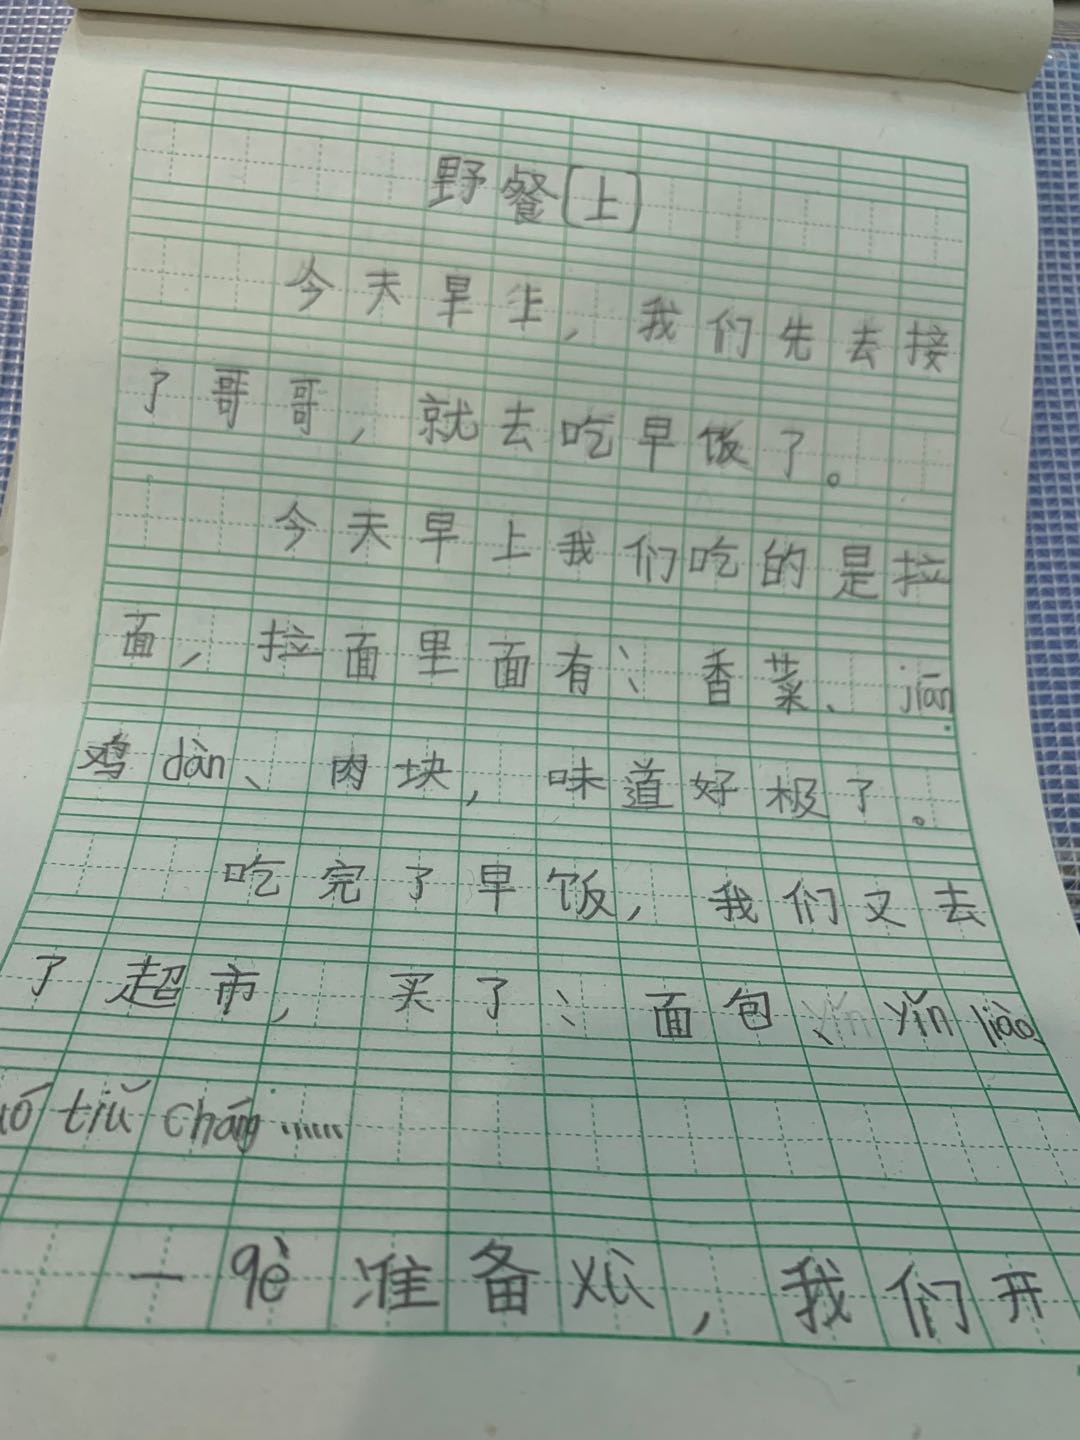 野餐[上]
今天早上，我们先去接
了哥哥，就去吃早饭了。
今天早上我们吃的是拉
面，拉面里面有：香菜、jiān
鸡dàn、肉块，味道好极了。
吃完了早饭，我们又去
了超市，买了：面包、yǐn yǐn liào、
uó tiǔ cháng……
一qiè准备xù，我们开